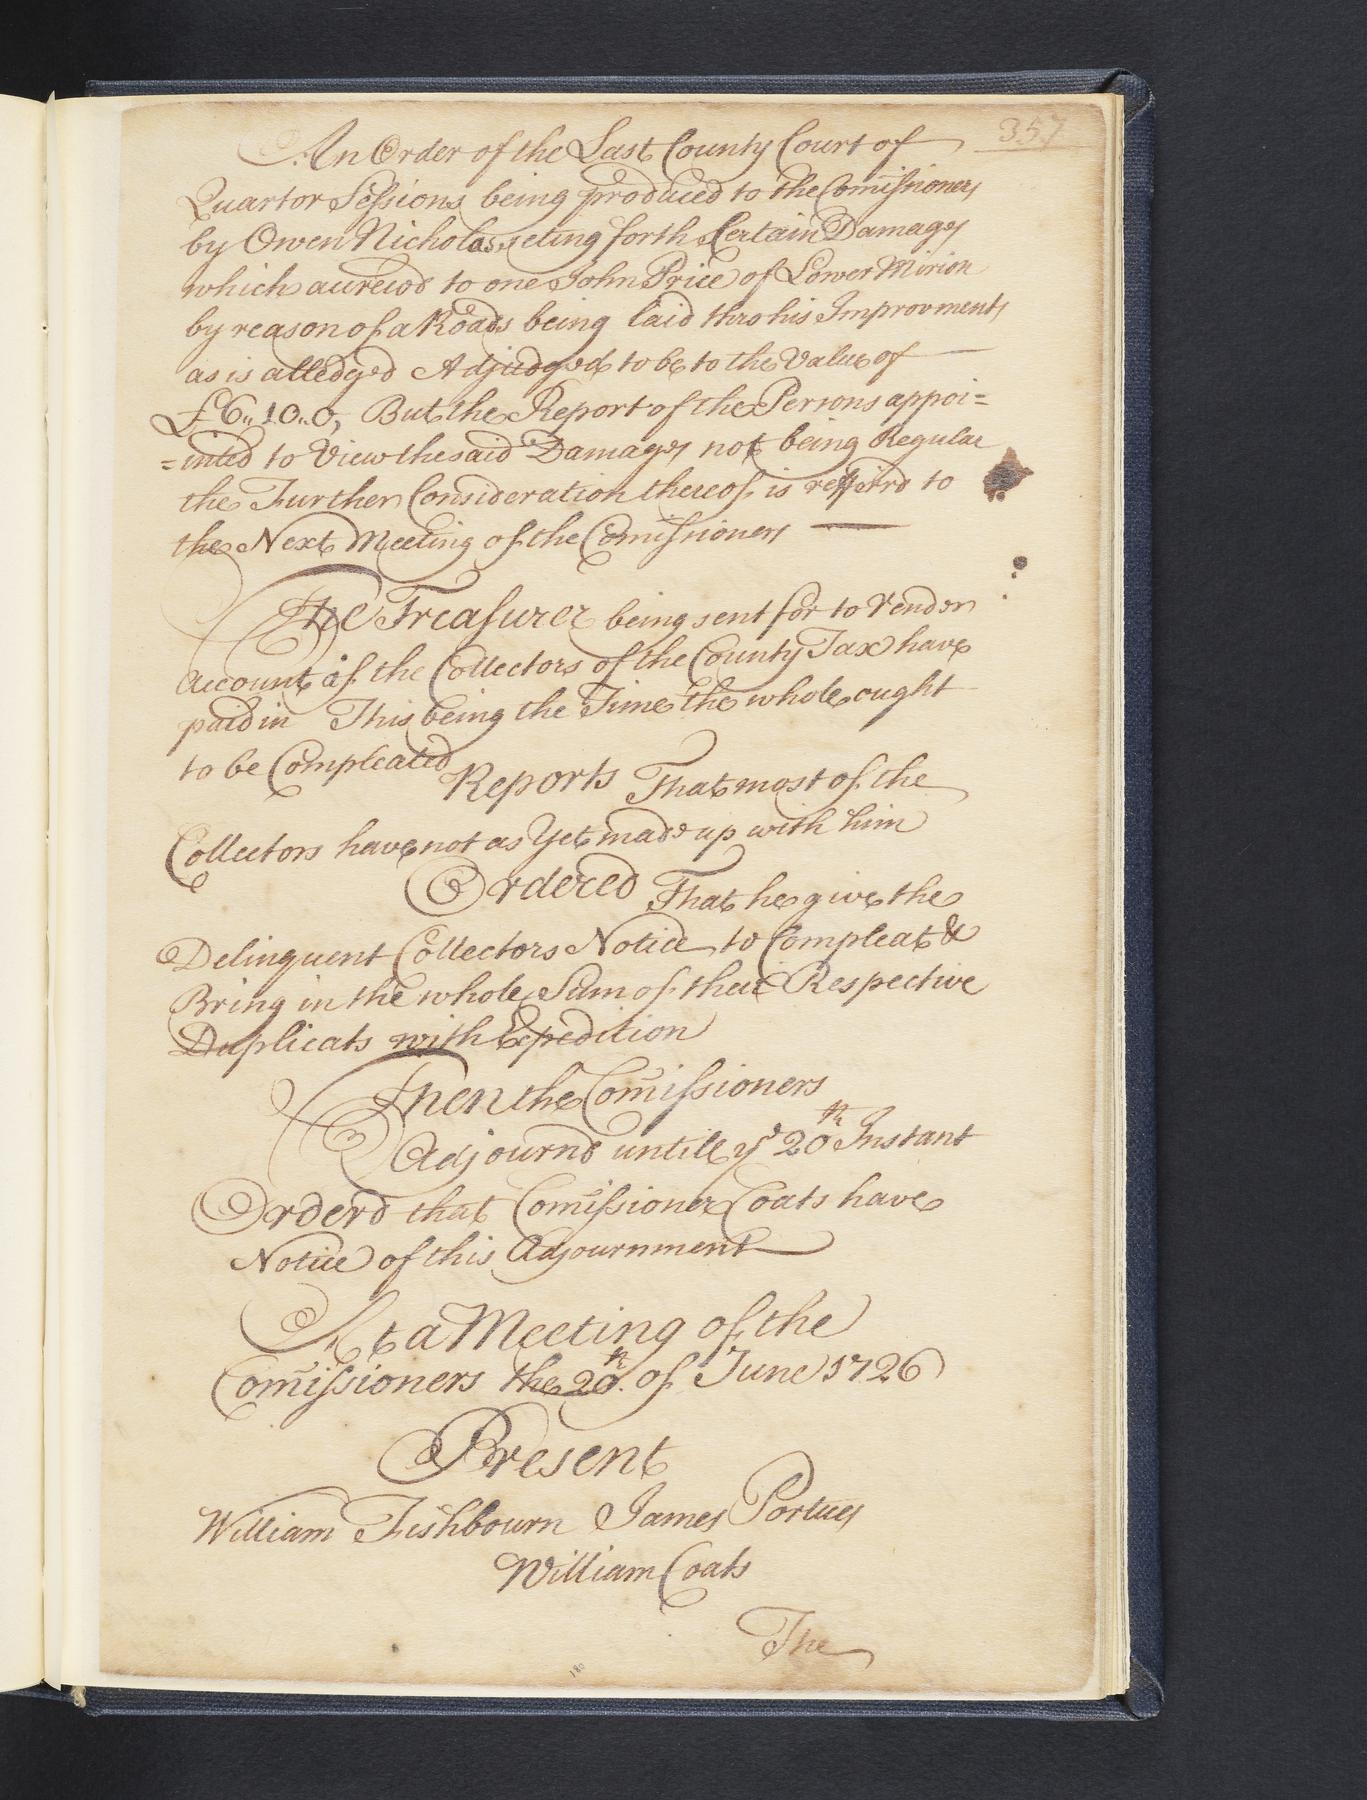 357
An Order of the Last County Court of
Quartor Sessions being produced to the Comissioners
by Owen Nicholas seting forth Certain Damages
which accrewd to one John Price of Lower Mirion
by reason of a Roads being laid thro his Improvments
as is alledged Adjudged to be to the Value of
£6,, 10,, 0, But the Report of the Persons appoi=
=inted to View the said Damages not being Regular
the Further Consideration thereof is referrd to
the Next Meeting of the Comissioners
The Treasurer being sent for to Render
Account if the Collectors of the County Tax have
paid in This being the Time the whole ought
to be Compleated
Reports That most of the
Collectors have not as Yet made up with him
Ordered That he give the
Delinquent Collectors Notice to Compleat &
Bring in the whole Sum of their Respective
Duplicats with Expedition
Then the Comissioners
Adjournd untill ye 20th Instant
Orderd that Comissioner Coats have
Notice of this Adjournment
At a Meeting of the
Comissioners the 20th of June 1726
Present
William Fishbourn James Portues
William Coats
The
180